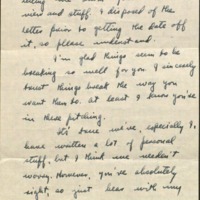 view and stuff. I disposed of the
letter prior to getting the date off
it, so please understand.
I'm glad things seem to be
breaking so well for you. I sincerely
trust things break the way you
want them to. At least I know you're
in there pitching.
It's true we've, especially I,
have written a lot of personal
stuff, but I think we needn't
worry. However, you're absolutely
right, so just bear with my